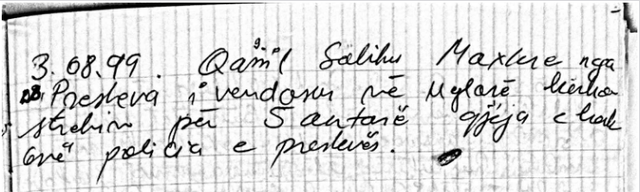 3.08.99. Qamil Salihu Maxhere nga
Presheva i vendosur në Mglarë kërkon
strehim për 5 antarë gjëja e kak
onë policia e preshevës.